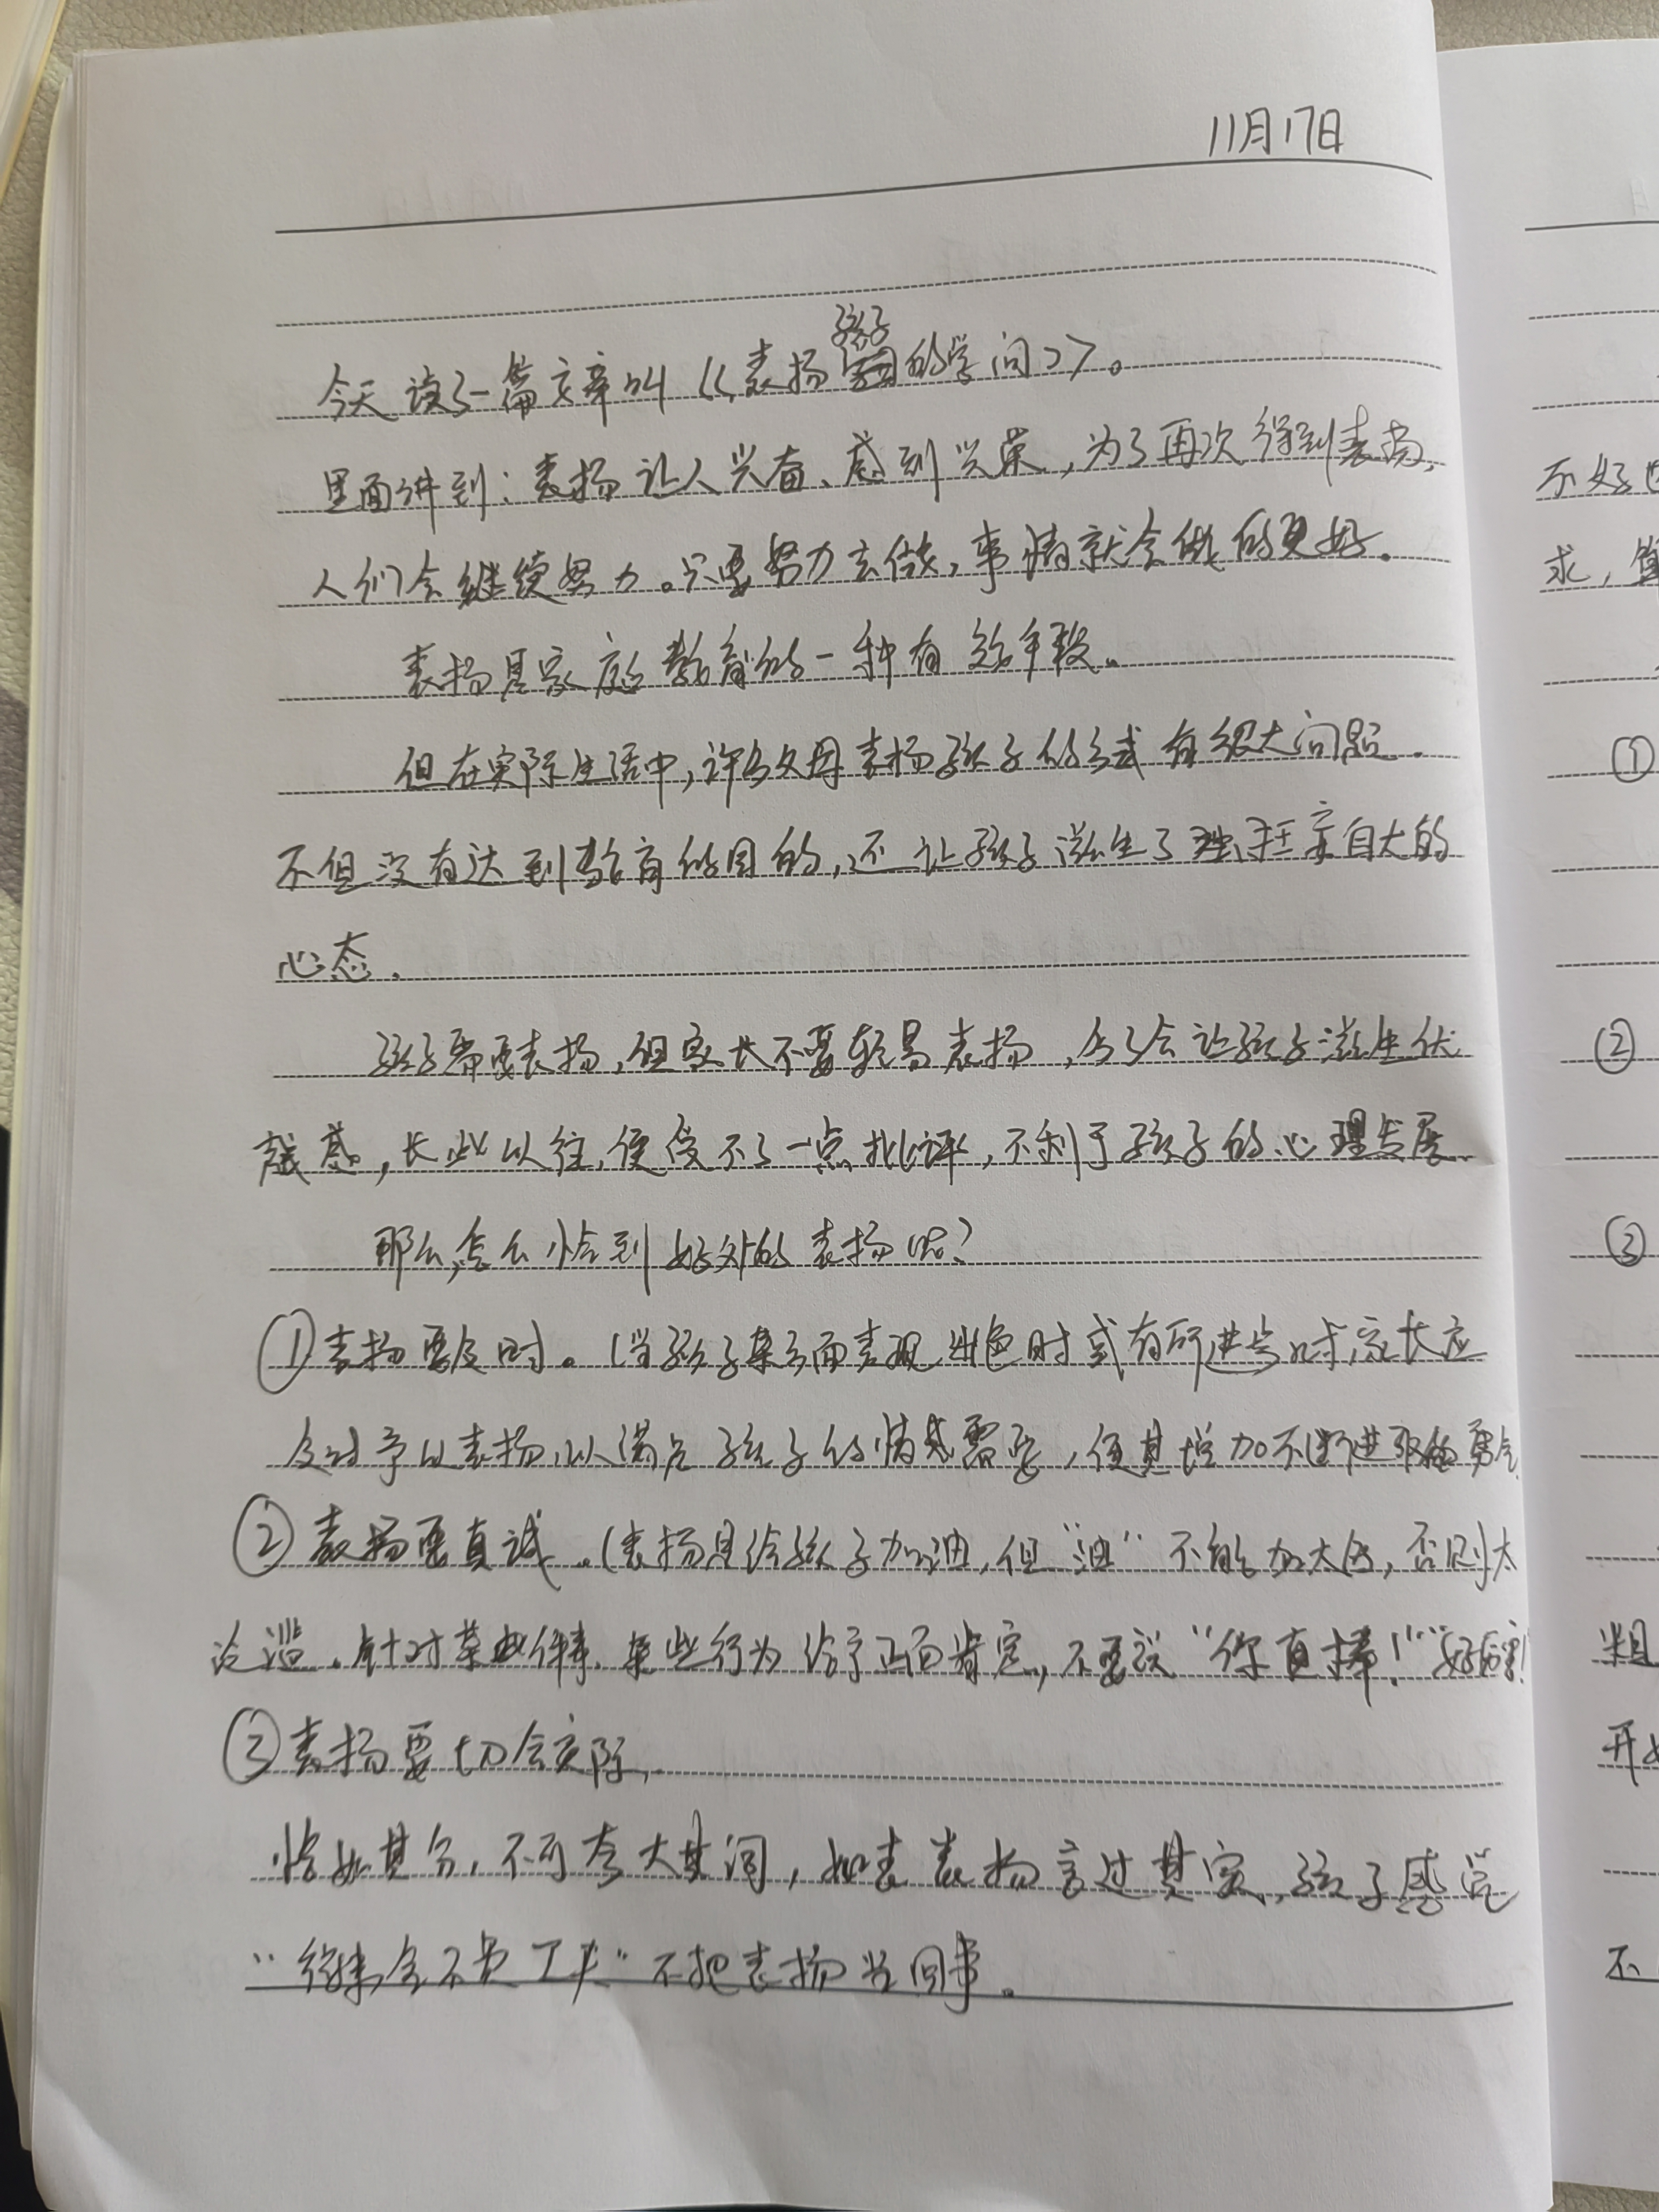 11月17日
今天读了一篇文章叫《表扬孩子的学问》。
里面讲到：表扬让人兴奋、感到光荣，为了再次得到表扬，
人们会继续努力。只要努力去做，事情就会做的更好.
表扬是家庭教育的一种有效手段。
但在实际生活中，许多父母表扬孩子的方式有很大问题.
不但没有达到教育的目的，还让孩子滋生了狂妄自大的
心态.
孩子需要表扬，但家长不要轻易表扬，会让孩子滋生优
越感，长此以往，便受不了一点批评，不利于孩子的心理发展
那么，怎么恰到好处的表扬呢？
①表扬要及时。（当孩子某方面表现出色时或有所进步时，家长应
及时予以表扬，以满足孩子的情感需要，使其增加不断进取的勇气
②表扬要真诚.（表扬是给孩子加油，但"油"不能加太多，否则太
泛滥.针对某些件事、某些行为给予正面肯定，不要说"你真棒！""好厉害！
③表扬要切合实际.
恰如其分，不可夸大其词，如表表扬言过其实，孩子感觉
"得来全不费工夫"不把表扬当回事。
不好
求，
①
②
③
粗
开
不